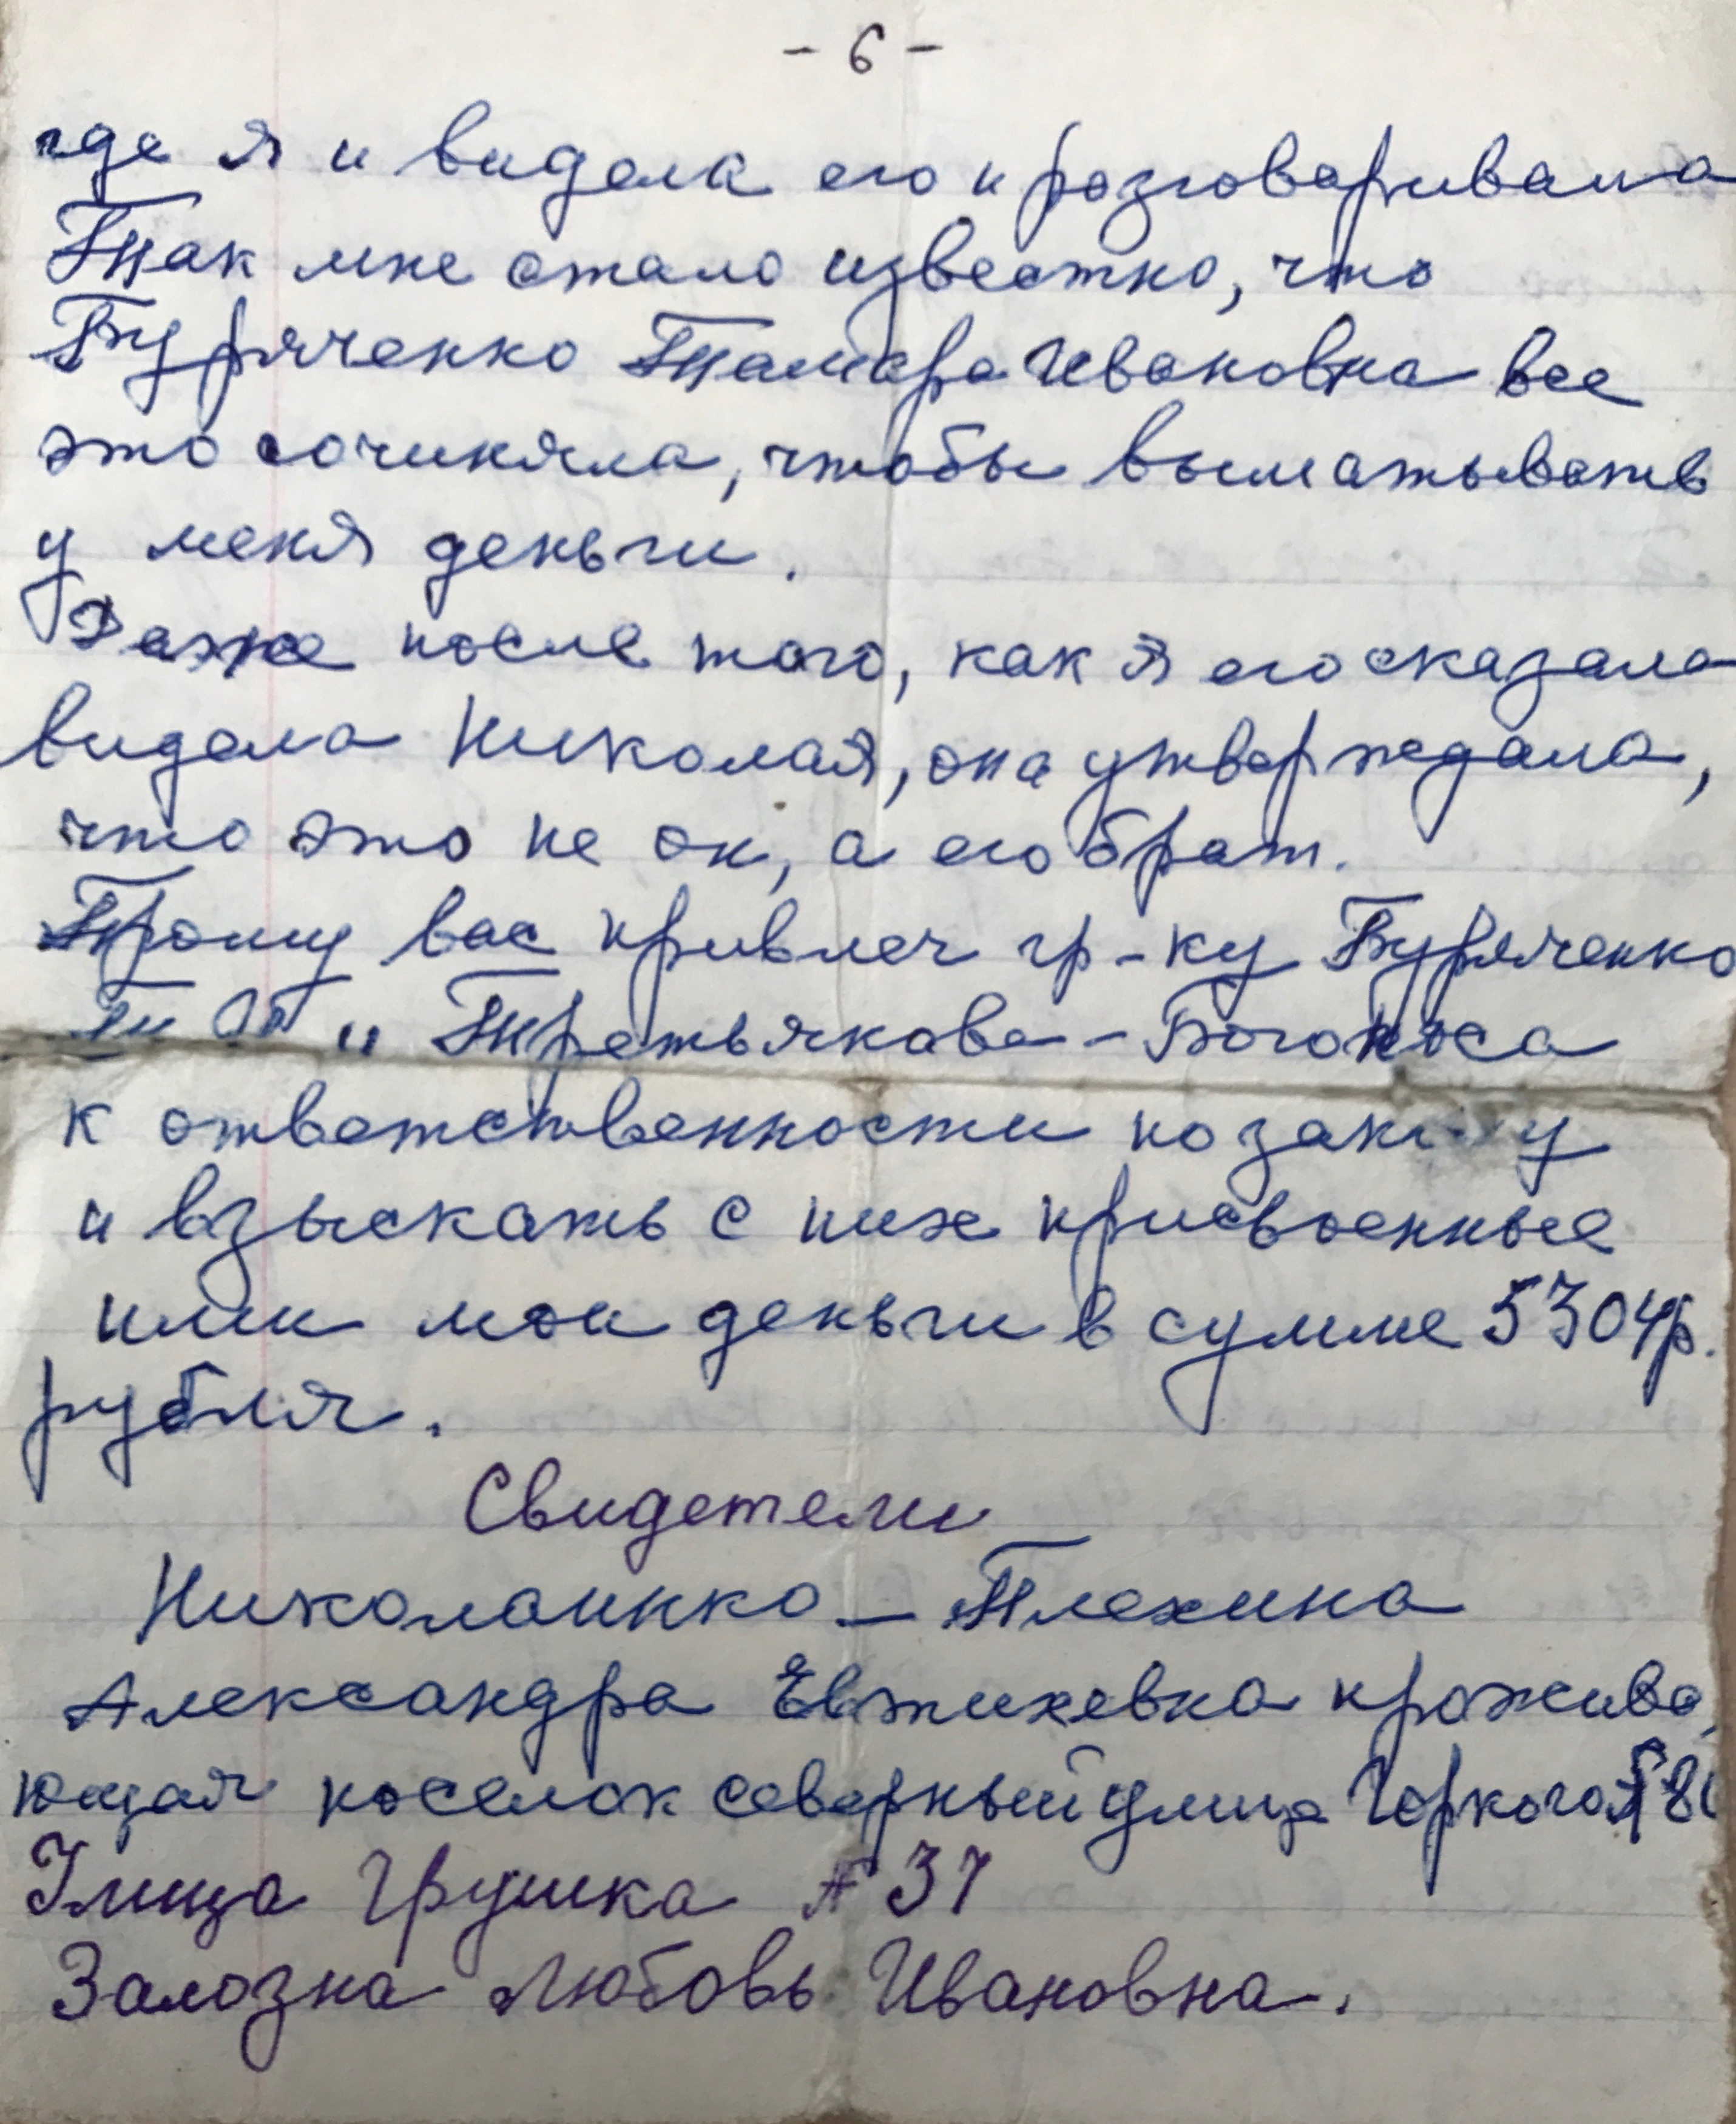 - 6 -
где я и видела его и розговаривала
Так мне стало известно, что
Буряченко Тамара Ивановна все
это сочиняла, чтобы выматывать
у меня деньги.
Даже после того, как я его сказала
видела Николая, она утверждала,
что это не он, а его брат.
Прошу вас привлеч гр-ку Буряченко
и Третьякова-Богоноса
к ответственности по закону
и взыскать с них присвоенные
ими мои деньги в сумме 5304р.
рубля.
Свидетели
Николаинко - Плехина
Александра Евтихевна прожива
ющая поселок северный улица Горкого
Улица Грушка № 37
Залозна Любовь Ивановна.